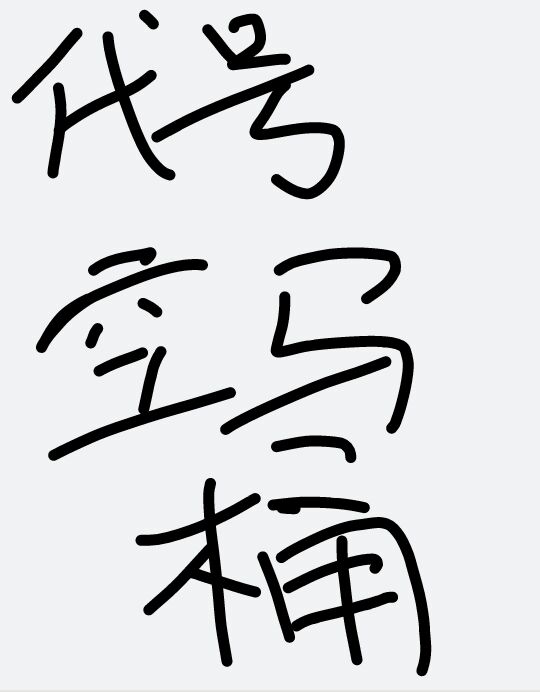 代号
空马
桶